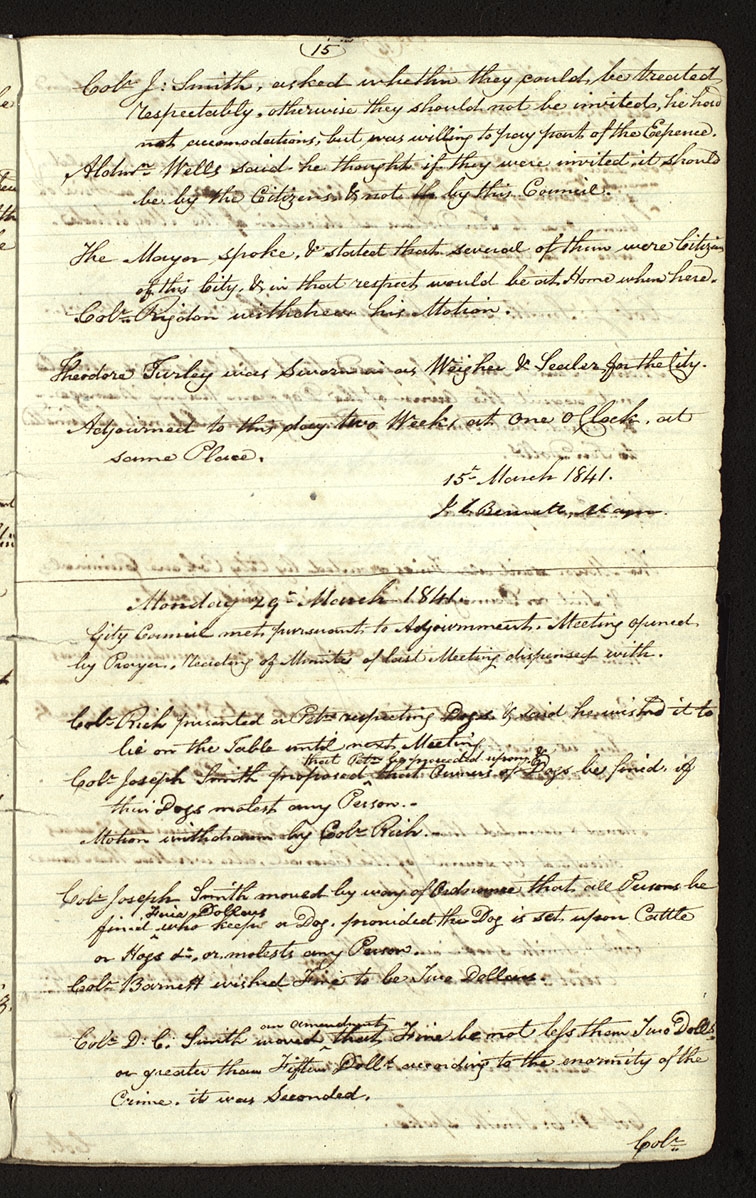 15
Colr. J: Smith, asked whether they could be treated
respectably, otherwise they should not be invited, he had
not accomodations, but was willing to pay part of the Expence.
Aldmn. Wells said he thought if they were invited, it should
be by the Citizens & not by this Council.
The Mayor spoke, & stated that several of them were Citizens
of this City, & in that respect would be at Home when here.
Colr. Rigdon withdrew his Motion.
Theodore Turley was Sworn as Weigher & Sealer for the City.
Adjourned to this day two Weeks, at One o'Clock, at
same Place.
15th March 1841.
J. C. Bennett, Mayor.
Monday 29th March 1841.
City Council met, pursuant to Adjournment. Meeting opened
by Prayer. Reading of Minutes of last Meeting dispensed with.
Colr. Rich presented a Petn. respecting Dogs & said he wished it to
lie on the Table until next Meeting
that Petn. be proceeded upon, &
Colr. Joseph Smith proposed that Owners of Dogs be fined, if
their Dogs molest any Person.-
Motion withdrawn by Colr. Rich.-
Colr. Joseph Smith moved by way of Ordinance that all Persons be
Five Dollars
fined who keeps a Dog, provided the Dog is set upon Cattle
or Hogs &c, or molests any Person.
Colr. Barnett wished Fine to be Two Dollars.
an amendment
Colr. D: C: Smith moved that Fine be not less than Two Dolls.
or greater than Fifteen Dolls. according to the enormity of the
Crime. it was Seconded.
Colr.